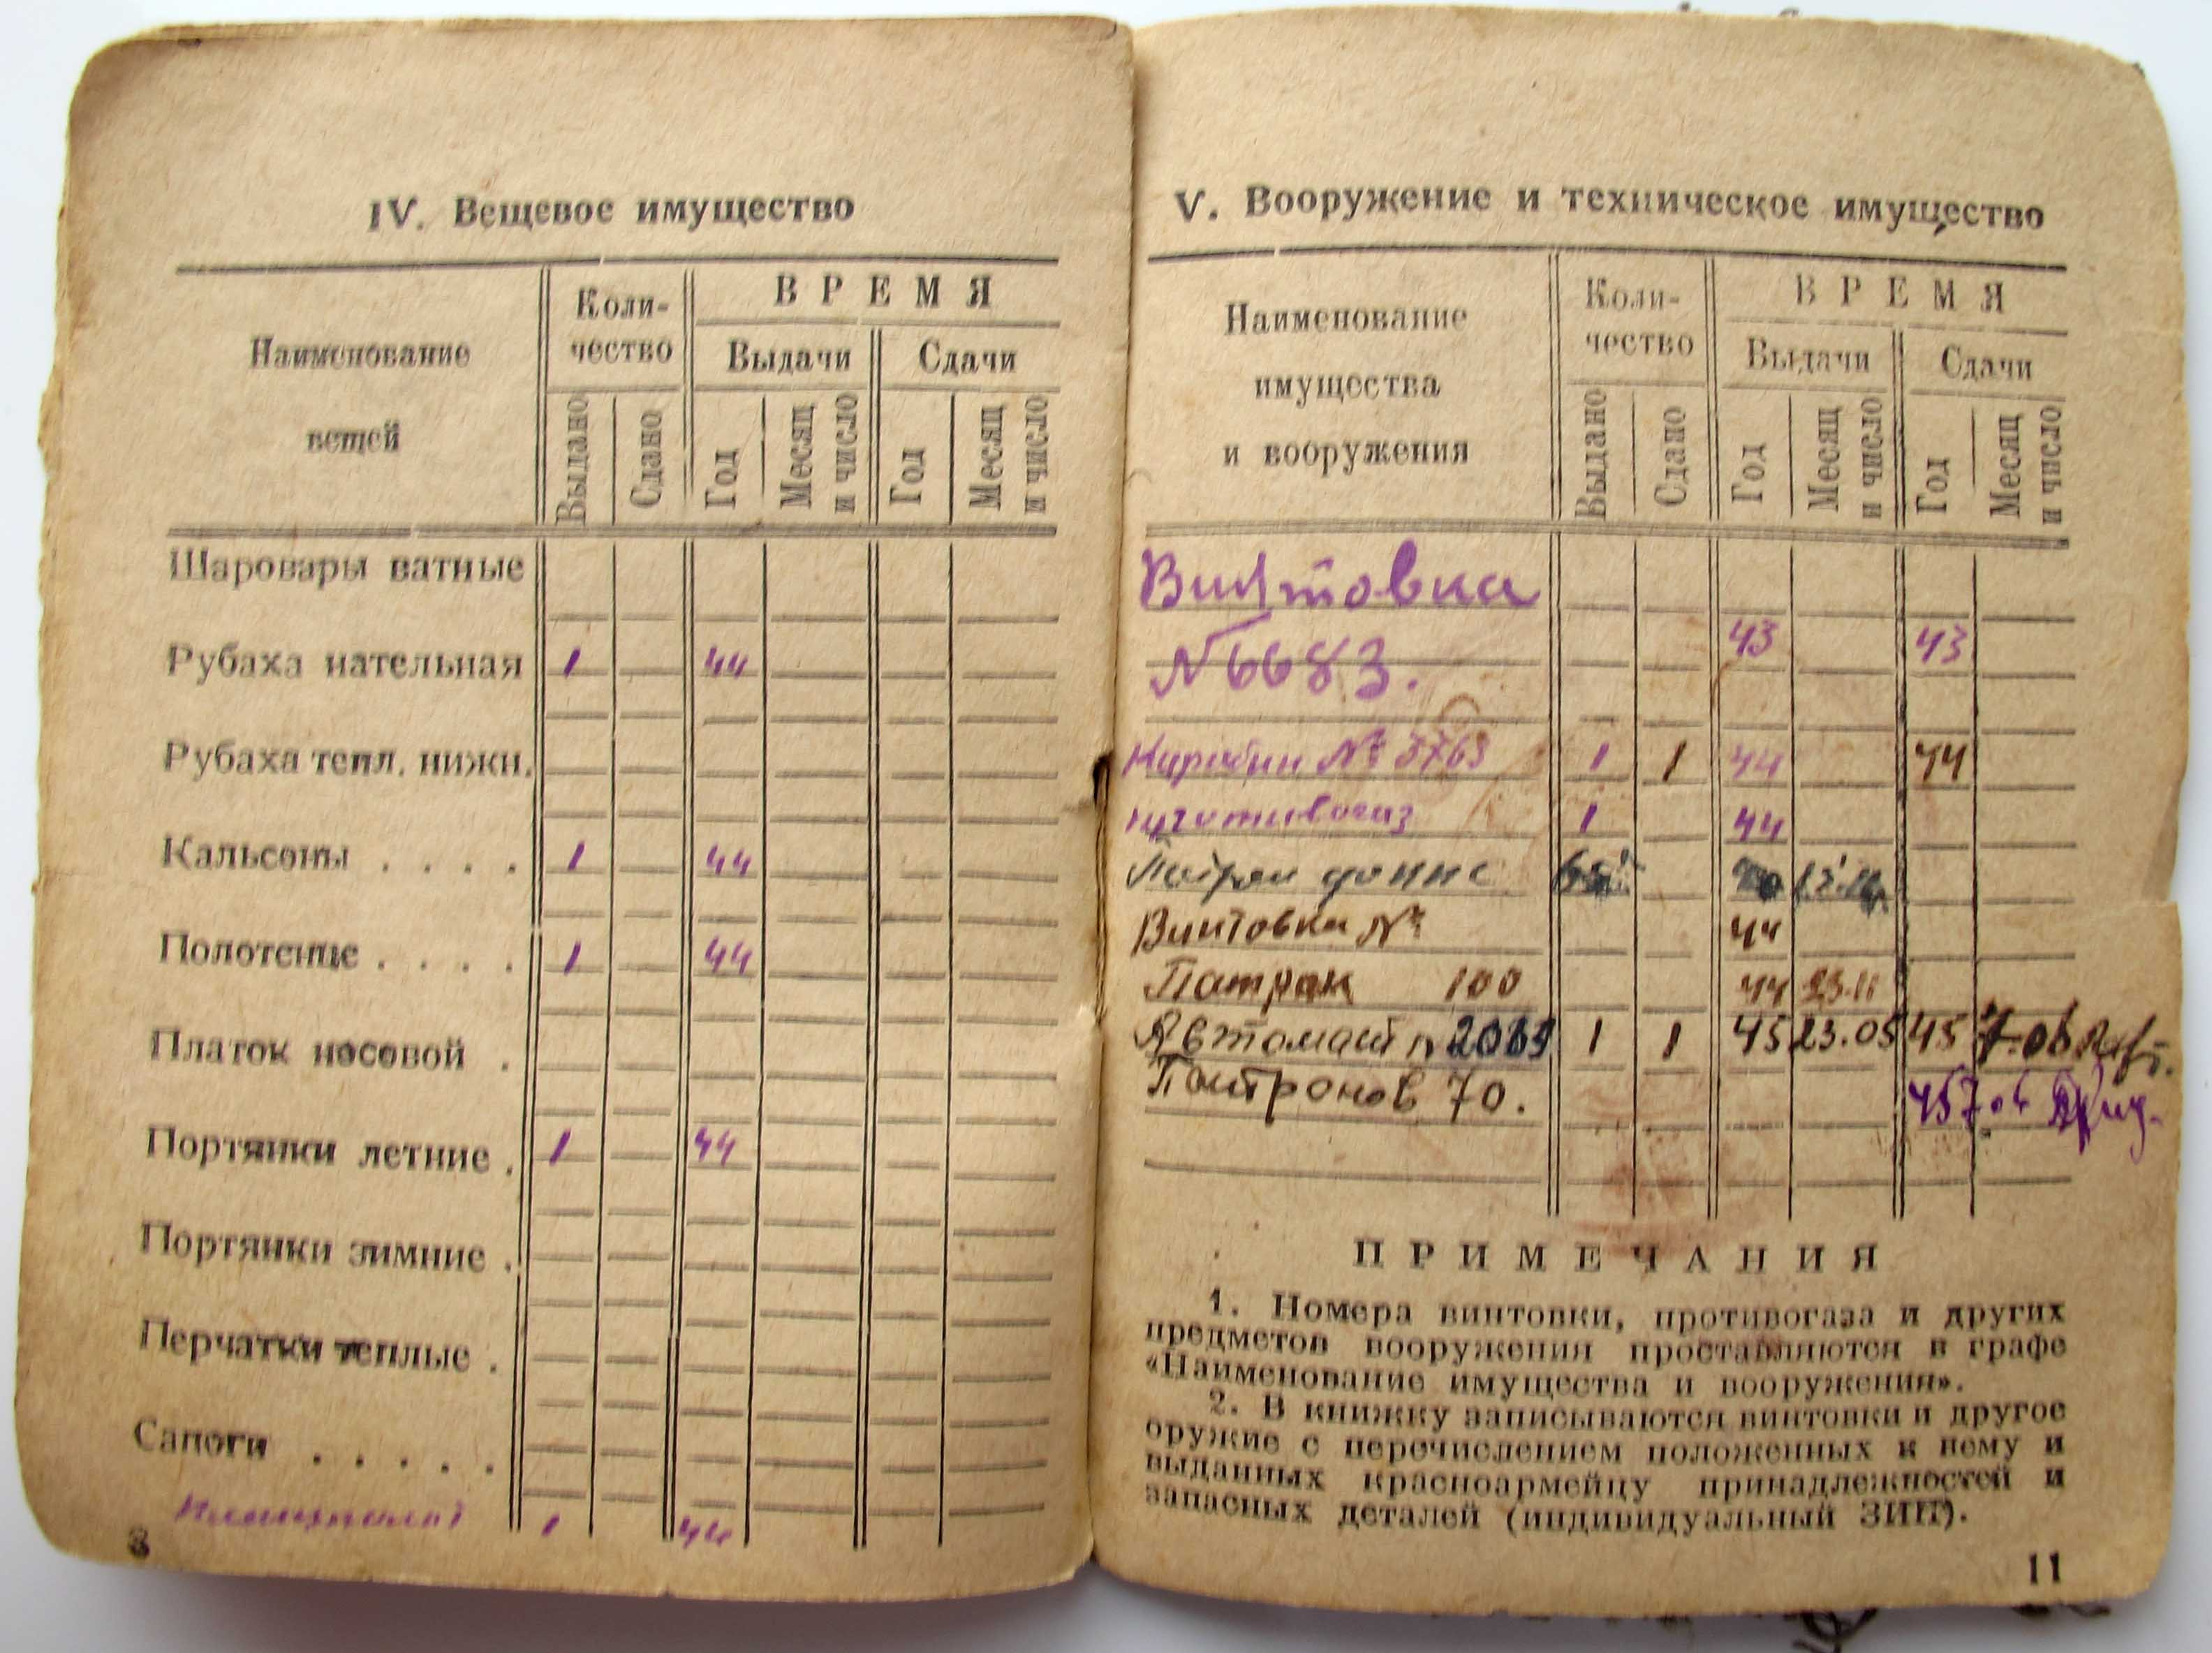 IV. Вещевое имущество
Наименование вещей
Коли-
чество
ВРЕМЯ
Выдачи
Сдачи
Выдано
Сдано
Год
Месяц
и число
Год
Месяц
и число
Шаровары ватные
Рубаха нательная 1 44
Рубаха тепл. нижн.
Кальсоны . . . . 1 44
Полотенце . . . . 1 44
Платок носовой .
Портянки летние . 1 44
Портянки зимние .
Перчатки теплые .
Сапоги . . . . .
1 44
V. Вооружение и техническое имущество
Наименование
имущества
и вооружения
Коли-
чество
ВРЕМЯ
Выдачи
Сдачи
Выдано
Сдано
Год
Месяц
и число
Год
Месяц
и число
Винтовка
№6683. 43 43
Карабин № 3763 1 1 44 44
противогаз 1 44
Винтовка № 44
Патрон 100 44 23.11
Автомат № 1 1 45 23.05 45 7.06
Патронов 70. 45 7.06
ПРИМЕЧАНИЯ
1. Номера винтовки, противогаза и других
предметов вооружения проставляются в графе
«Наименование имущества и вооружения».
2. В книжку записываются винтовки и другое
оружие с перечислением положенных к нему и
выданных красноармейцу принадлежностей и
запасных деталей (индивидуальный ЗИП).
11